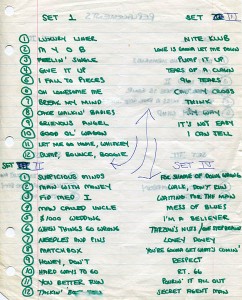 SET 1
SET III
① LUXURY LINER
② M Y O B
③ FEELIN' SINGLE
④ GIVE IT UP
⑤ FALL TO PIECES
⑥ OH LONESOME ME
⑦ BREAK MY MIND
⑧ CAGE WALKIN' BABIES
⑨ GRIEVOUS ANGEL
⑩ GOOD OL' WAGON
⑪ LET ME GO HOME, WHISKEY
⑫ BUMP, BOUNCE, BOOGIE
NITE KLUB
LOVE IS GONNA LET ME DOWN
PUMP IT UP
TEARS OF A CLOWN
96 TEARS
CRY MY CROSS
THINK
SAY MAMA
IT'S NOT EASY
I CAN TELL
SET II
① SUSPICIOUS MINDS
② MAN WITH MONEY
③ FTD TMED I
④ MAN CALLED UNCLE
⑤ $1000 WEDDING
⑥ WHEN THINGS GO WRONG
⑦ NEEDLES AND PINS
⑧ MATCHBOX
⑨ HONEY, DON'T
⑩ HARD WAYS TO GO
⑪ YOU BETTER RUN
⑫ TALKIN'
SET IV
FOR SHAME OF DOING WRONG
WALK, DON'T RUN
WAITING FOR THE MAN
MESS OF BLUES
I'M A BELIEVER
TARZAN'S NUTS
LONEY DONEY
YOU'RE GONNA GET WHAT'S COMIN'
RESPECT
RT. 66
BURN IT ALL OUT
SECRET AGENT MAN